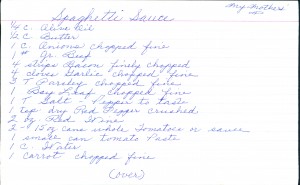 My Mothers
Spaghetti Sauce
1/4 c. Olive Oil
1/2 c Butter
1 c. Onions chopped fine
1 # Gr. Beef
4 strips Bacon finely chopped
4 cloves Garlic chopped fine
3 T Parsley chopped fine
1 Bay Leaf chopped fine
1 T Salt - Pepper to taste
1 tsp dry Red Pepper crushed
2 oz Red Wine
2 - #15 oz cans whole Tomatoes or sauce
1 small can tomato Paste
1 c. Water
1 carrot chopped fine
(over)